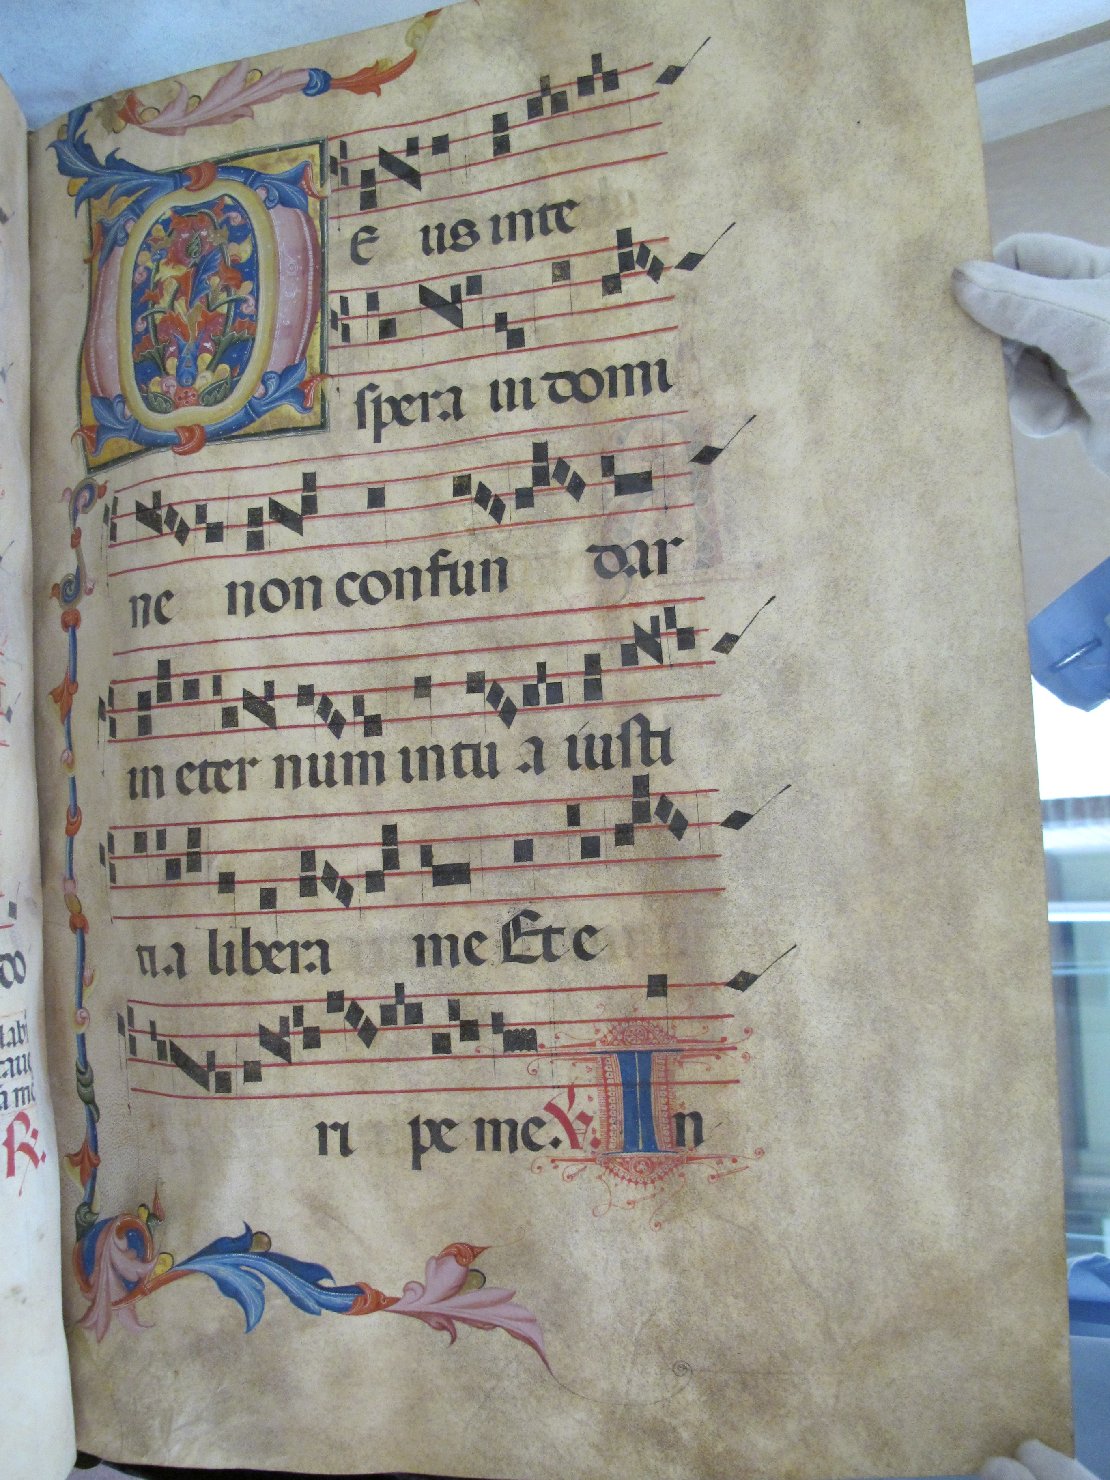 DE us in te
spera ui domi
ne non confun dar
in eter num in tu a iusti
ti a libera me Et e
ri pe me. ℣. In